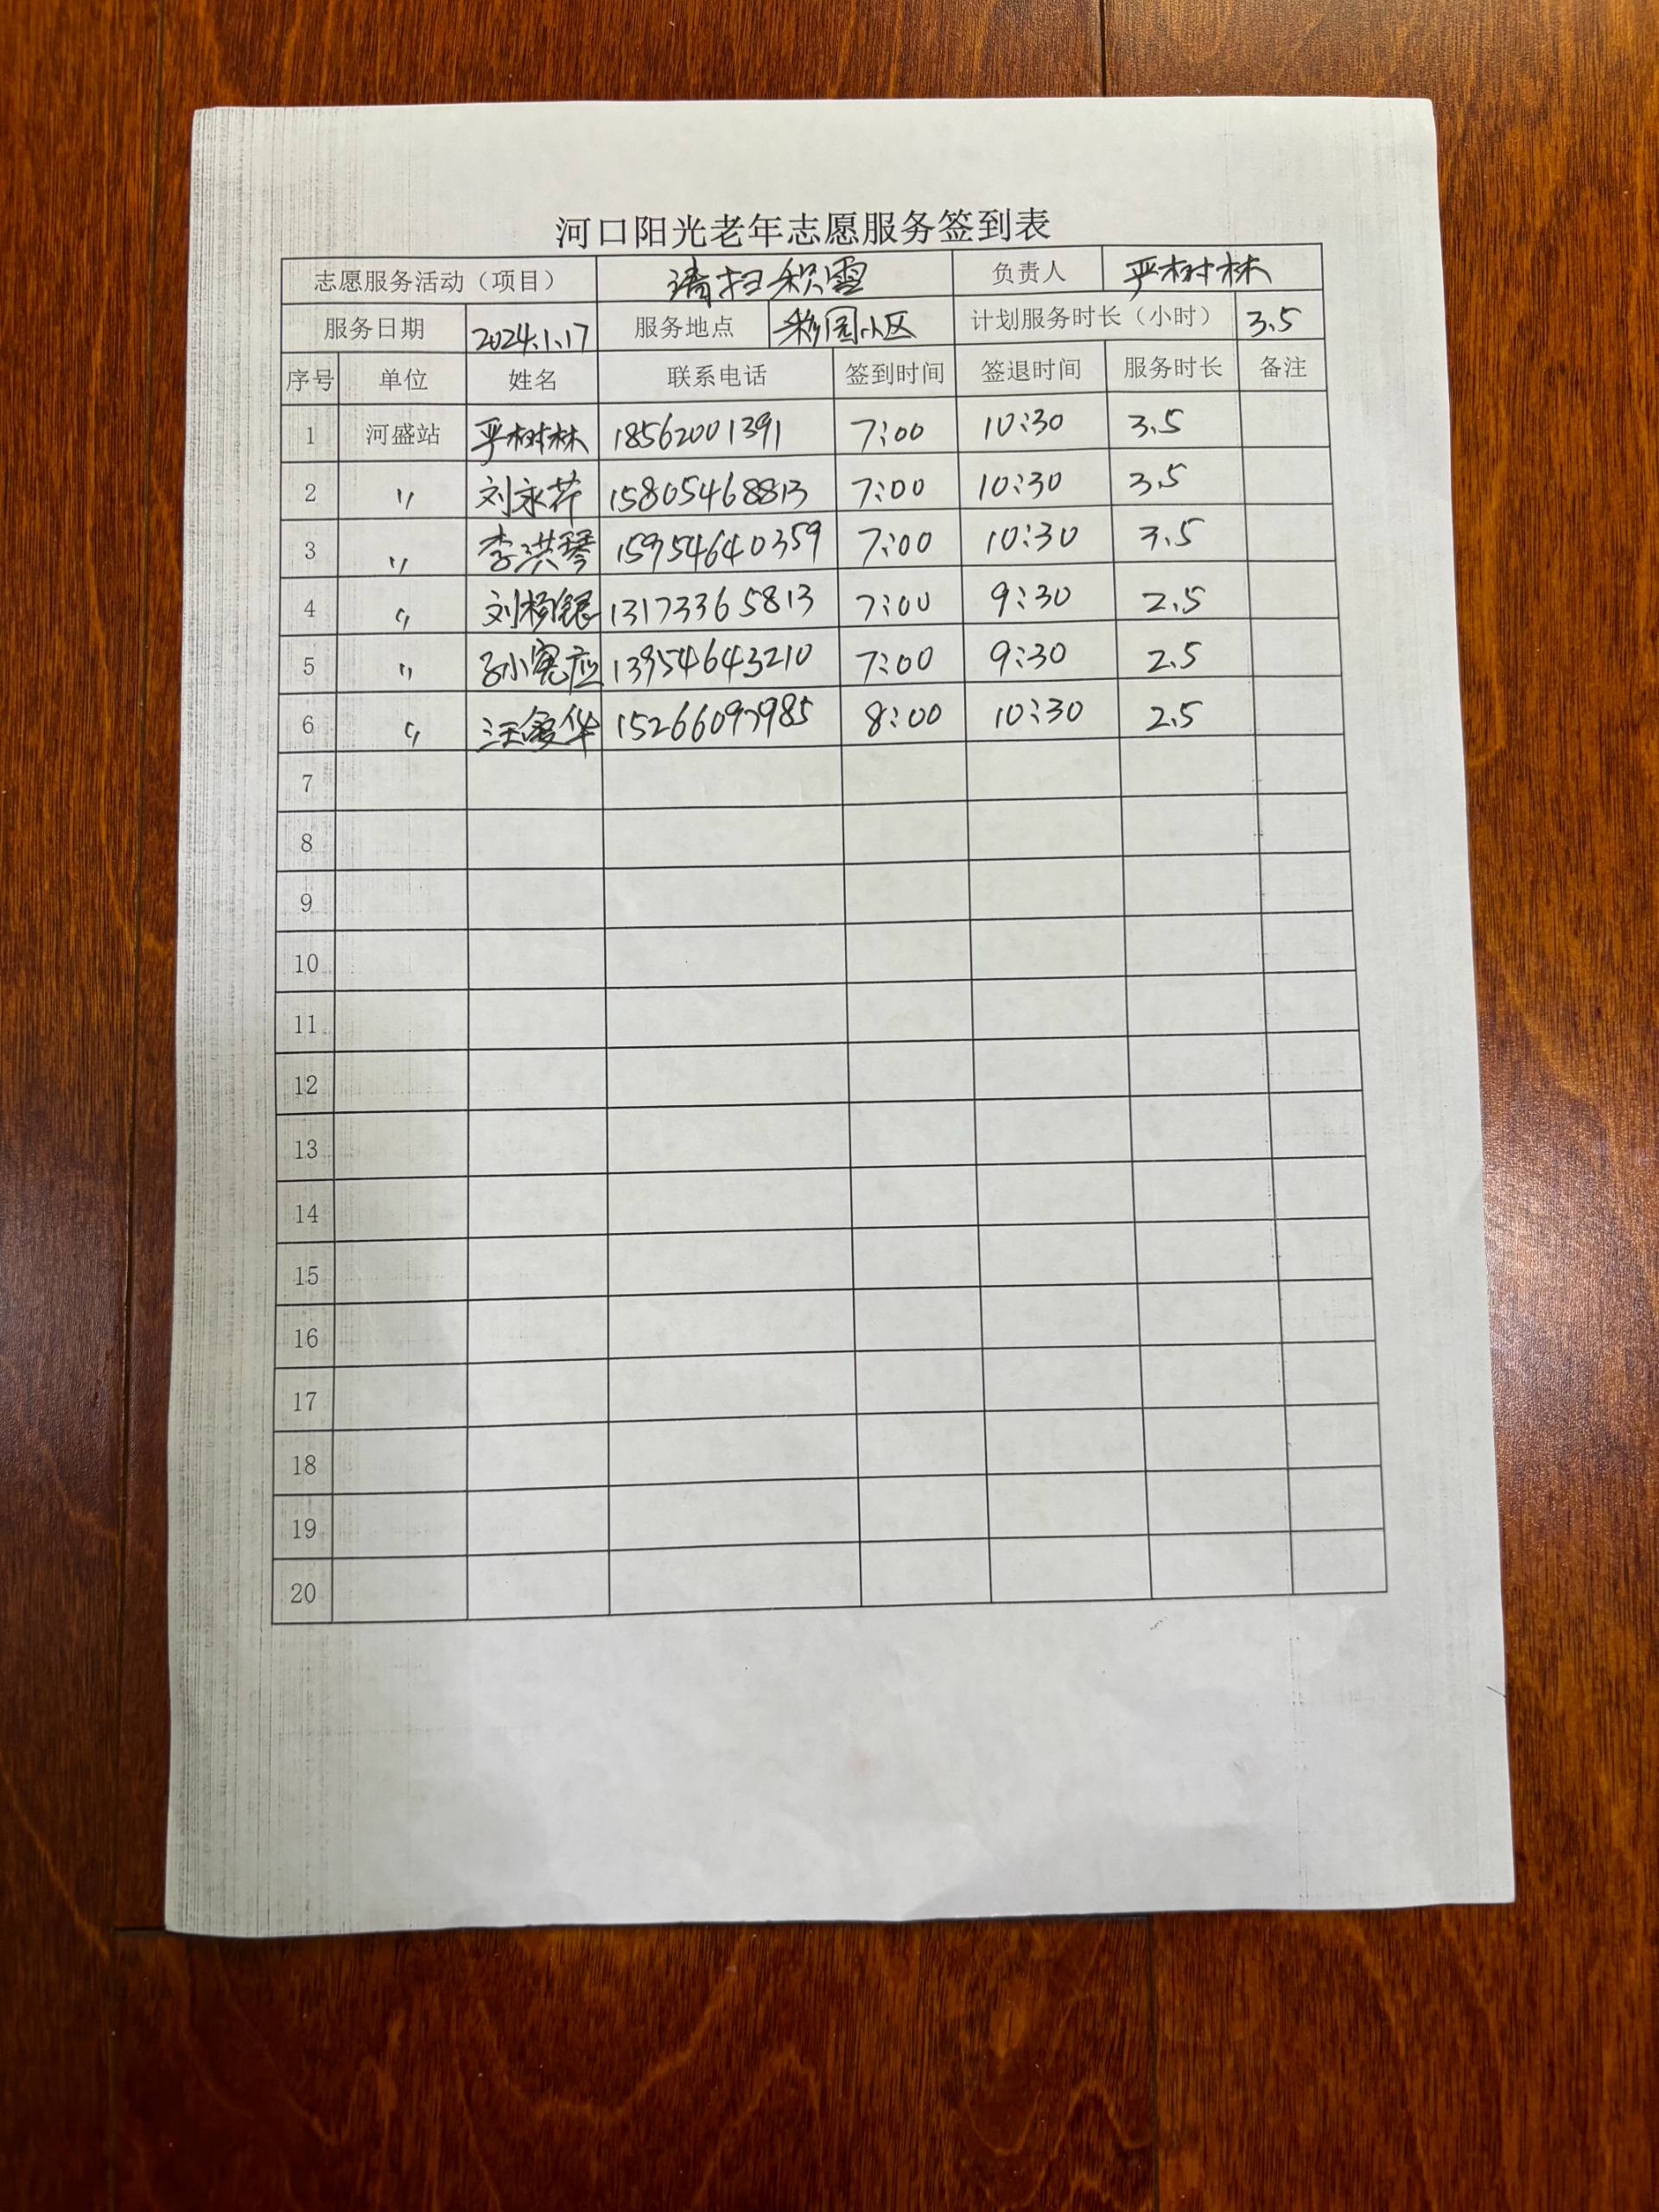 河口阳光老年志愿服务签到表
志愿服务活动（项目） 清扫积雪 负责人 严树林
服务日期 2024.1.17 服务地点 彩园小区 计划服务时长（小时） 3.5
序号 单位 姓名 联系电话 签到时间 签退时间 服务时长 备注
1 河盛站 严树林 18562001391 7:00 10:30 3.5
2 〃 刘永芹 15805468813 7:00 10:30 3.5
3 〃 李洪琴 15954640359 7:00 10:30 3.5
4 〃 刘杨银 13173365813 7:00 9:30 2.5
5 〃 孙宪应 13954643210 7:00 9:30 2.5
6 〃 汪爱华 15266097985 8:00 10:30 2.5
7
8
9
10
11
12
13
14
15
16
17
18
19
20